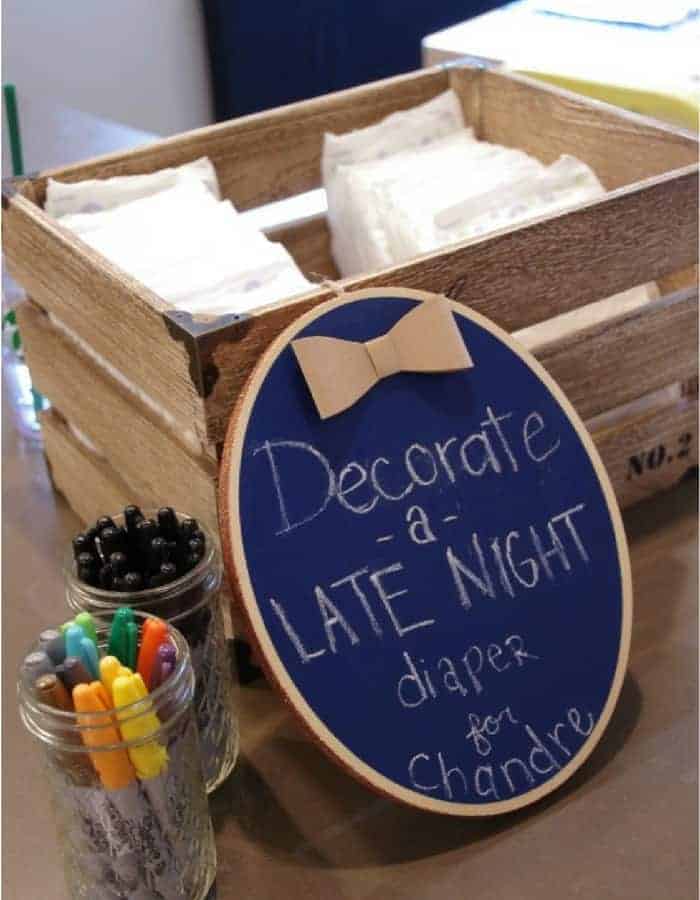 Decorate
-a-
LATE NIGHT
diaper
for
Chandre
NO.2